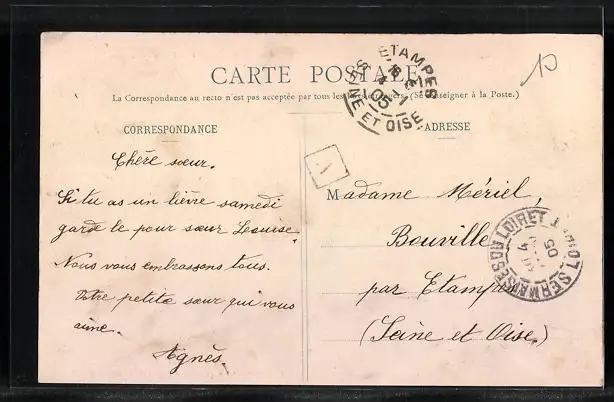 CARTE POSTALE
La Correspondance au recto n'est pas acceptée par tous les pays étrangers. (Se renseigner à la Poste.)
CORRESPONDANCE
ADRESSE
Chère sœur.
Si tu as un lièvre samedi
garde le pour sœur Louise.
Nous vous embrassons tous.
Votre petite sœur qui vous
aime.
Agnès.
Madame Mériel,
Bouville
par Etampes
(Seine et Oise.)
ETAMPES
05
SEINE ET OISE
SERMAISES DU LOIRET
05
A